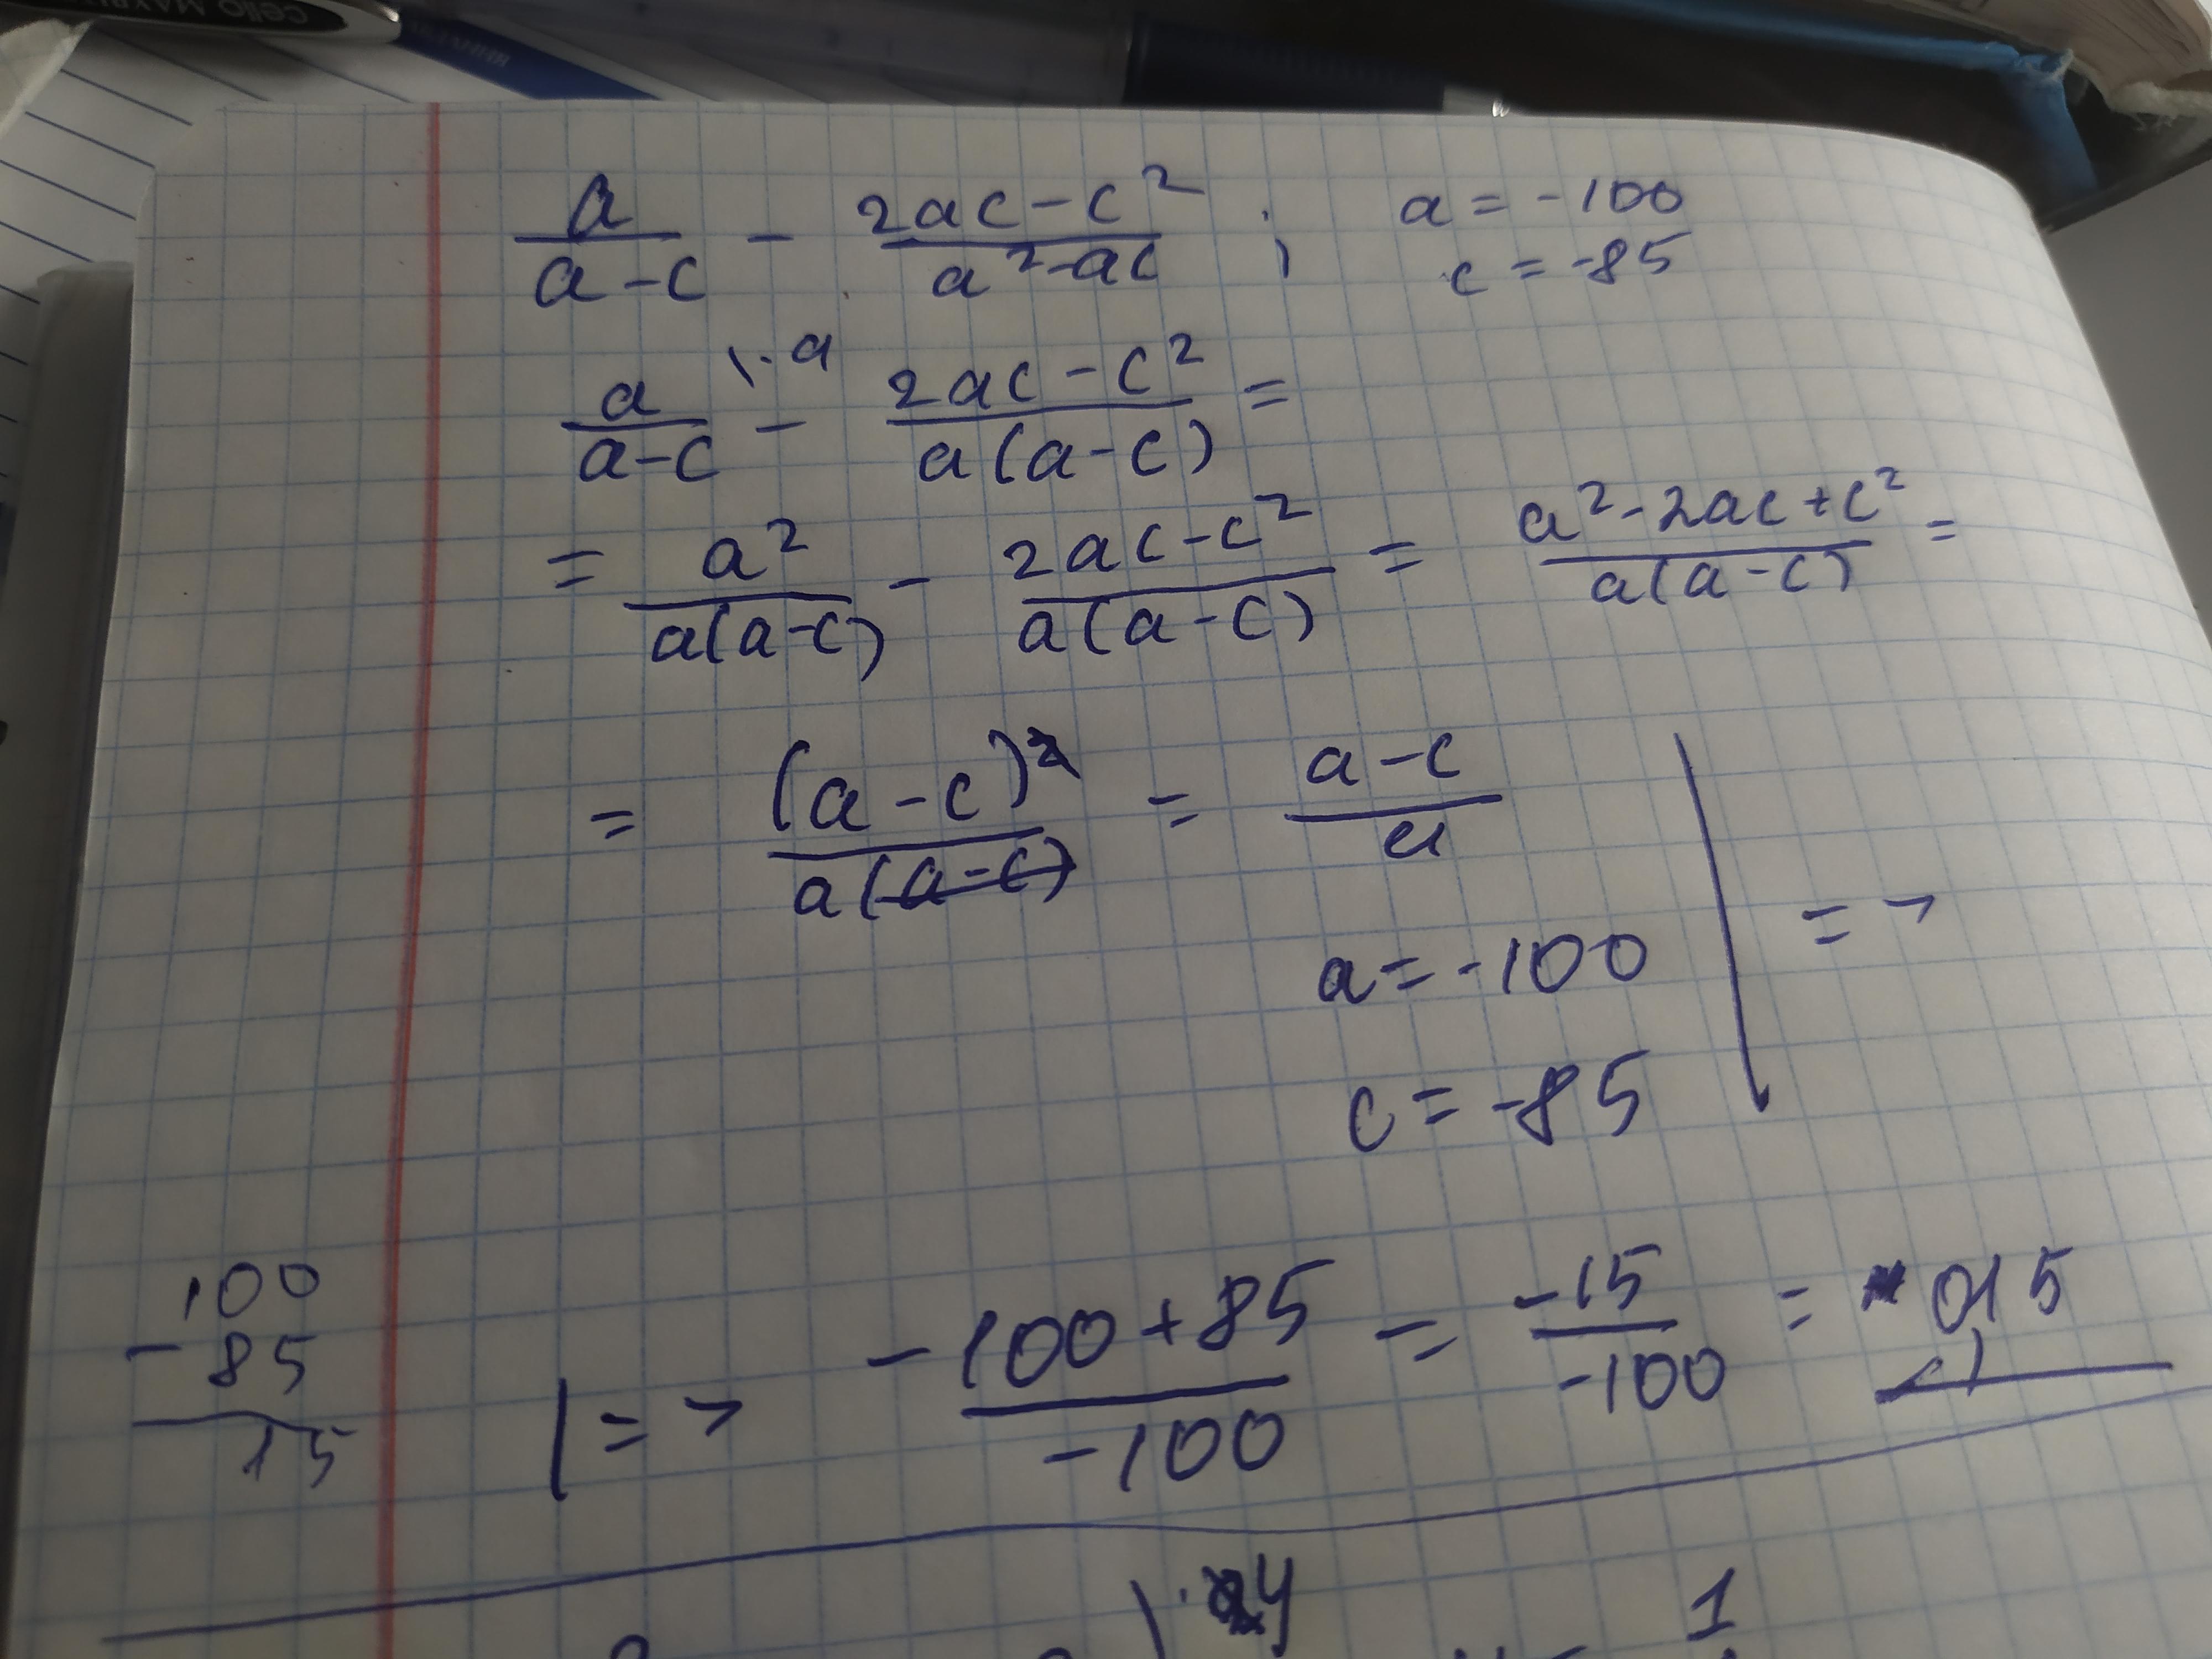 cello MAXRI
a/(a-c) - (2ac-c²)/(a²-ac) ; a = -100
c = -85
a/(a-c) \·a - (2ac-c²)/(a(a-c)) =
= a²/(a(a-c)) - (2ac-c²)/(a(a-c)) = (a²-2ac+c²)/(a(a-c)) =
= (a-c)²/(a(a-c)) = (a-c)/a
a = -100 | =>
c = -85
100
- 85
15
|=> (-100+85)/(-100) = -15/-100 = 0,15
\·y
1